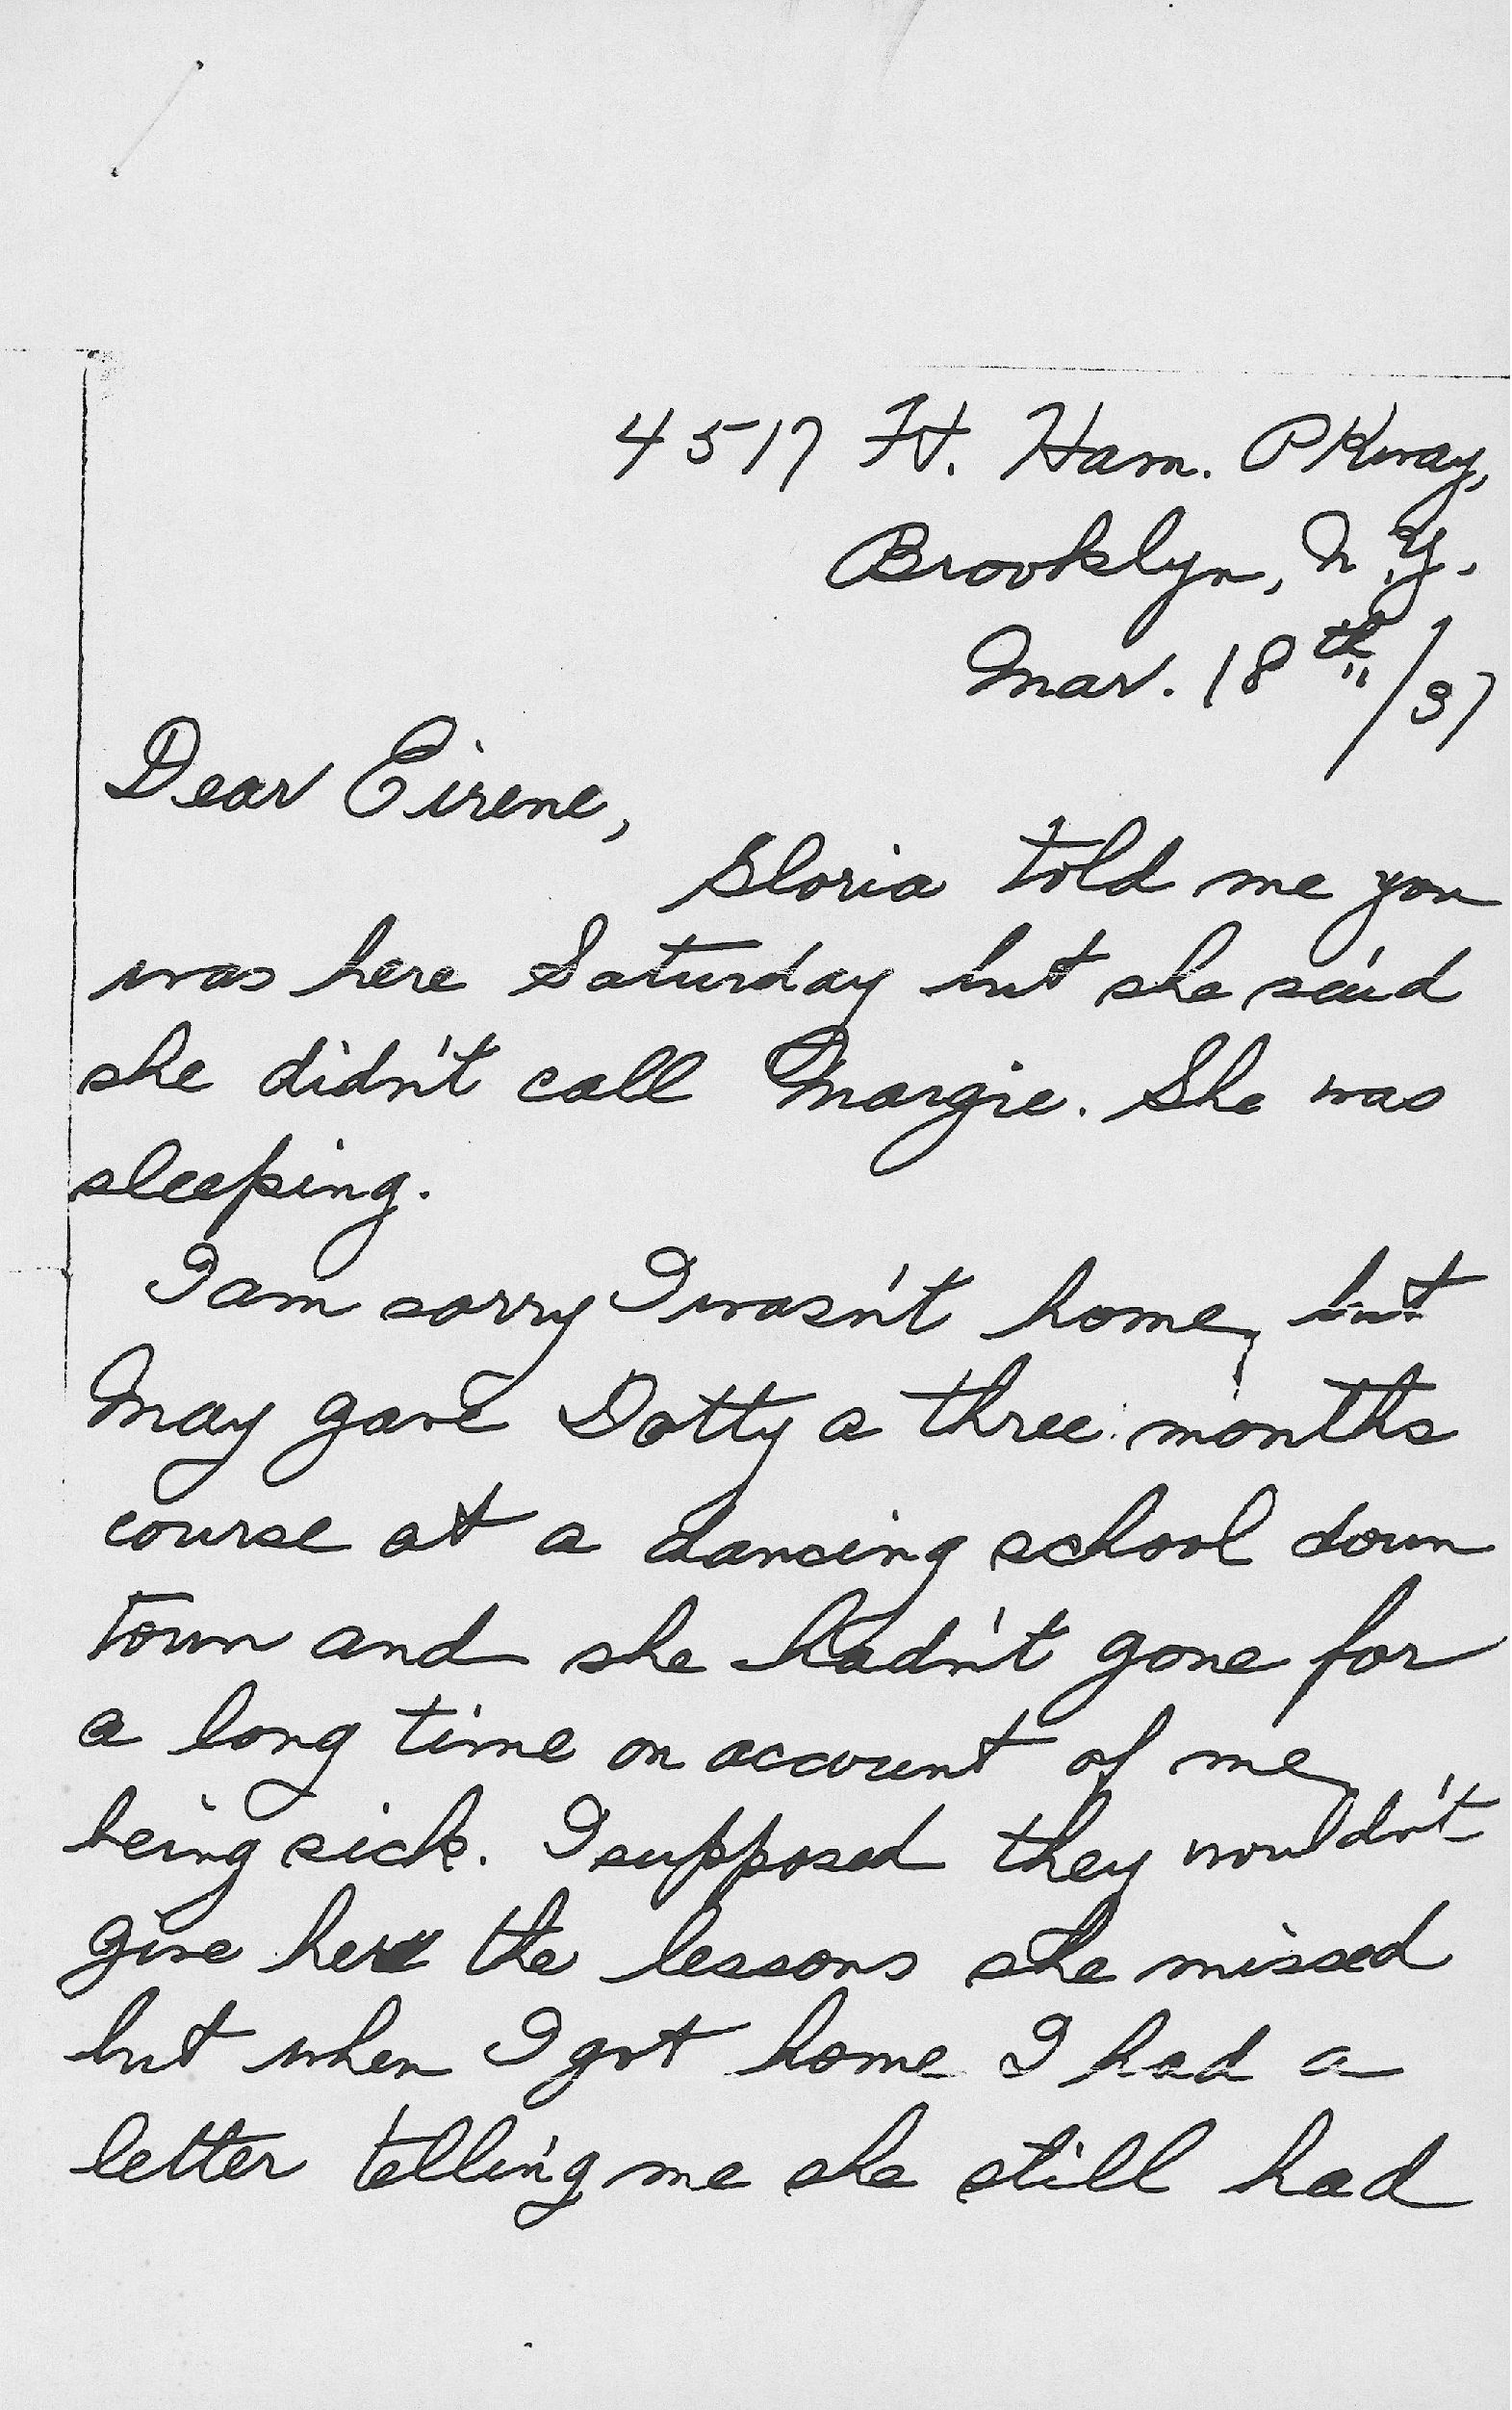 4517 Ft. Ham. PKway,
Brooklyn, N.Y.
Mar. 18th/37
Dear Eirene,
Gloria told me you
was here Saturday but she said
she didn't call Margie. She was
sleeping.
I am sorry I wasn't home, but
May gave Dotty a three months
course at a dancing school down
town and she hadn't gone for
a long time on account of me
being sick. I supposed they wouldn't
give her the lessons she missed
but when I got home I had a
letter telling me she still had